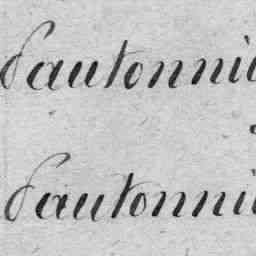 Sautonni
Sautonni